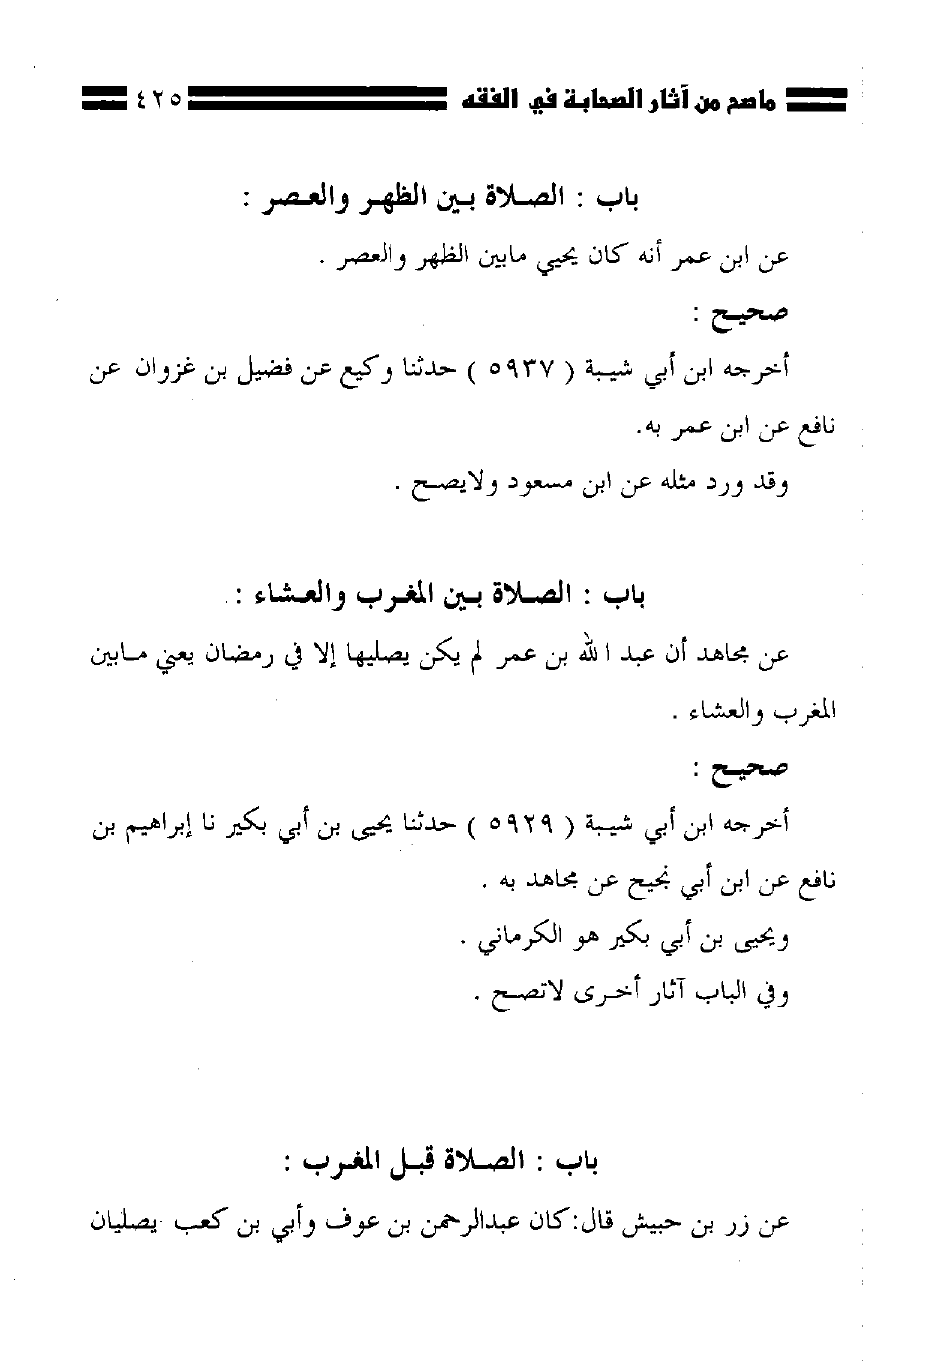 ماصح من آثار الصحابة في الفقه ٤٢٥
باب : الصلاة بين الظهر والعصر :
عن ابن عمر أنه كان يحيي مابين الظهر والعصر .
صحيح :
أخرجه ابن أبي شيبة ( ٥٩٣٧ ) حدثنا وكيع عن فضيل بن غزوان عن
نافع عن ابن عمر به.
وقد ورد مثله عن ابن مسعود ولايصح .
باب : الصلاة بين المغرب والعشاء :
عن مجاهد أن عبد الله بن عمر لم يكن يصليها إلا في رمضان يعني مابين
المغرب والعشاء .
صحيح :
أخرجه ابن أبي شيبة ( ٥٩٢٩ ) حدثنا يحيى بن أبي بكير نا إبراهيم بن
نافع عن ابن أبي نجيح عن مجاهد به .
ويحيى بن أبي بكير هو الكرماني .
وفي الباب آثار أخرى لاتصح .
باب : الصلاة قبل المغرب :
عن زر بن حبيش قال: كان عبدالرحمن بن عوف وأبي بن كعب يصليان